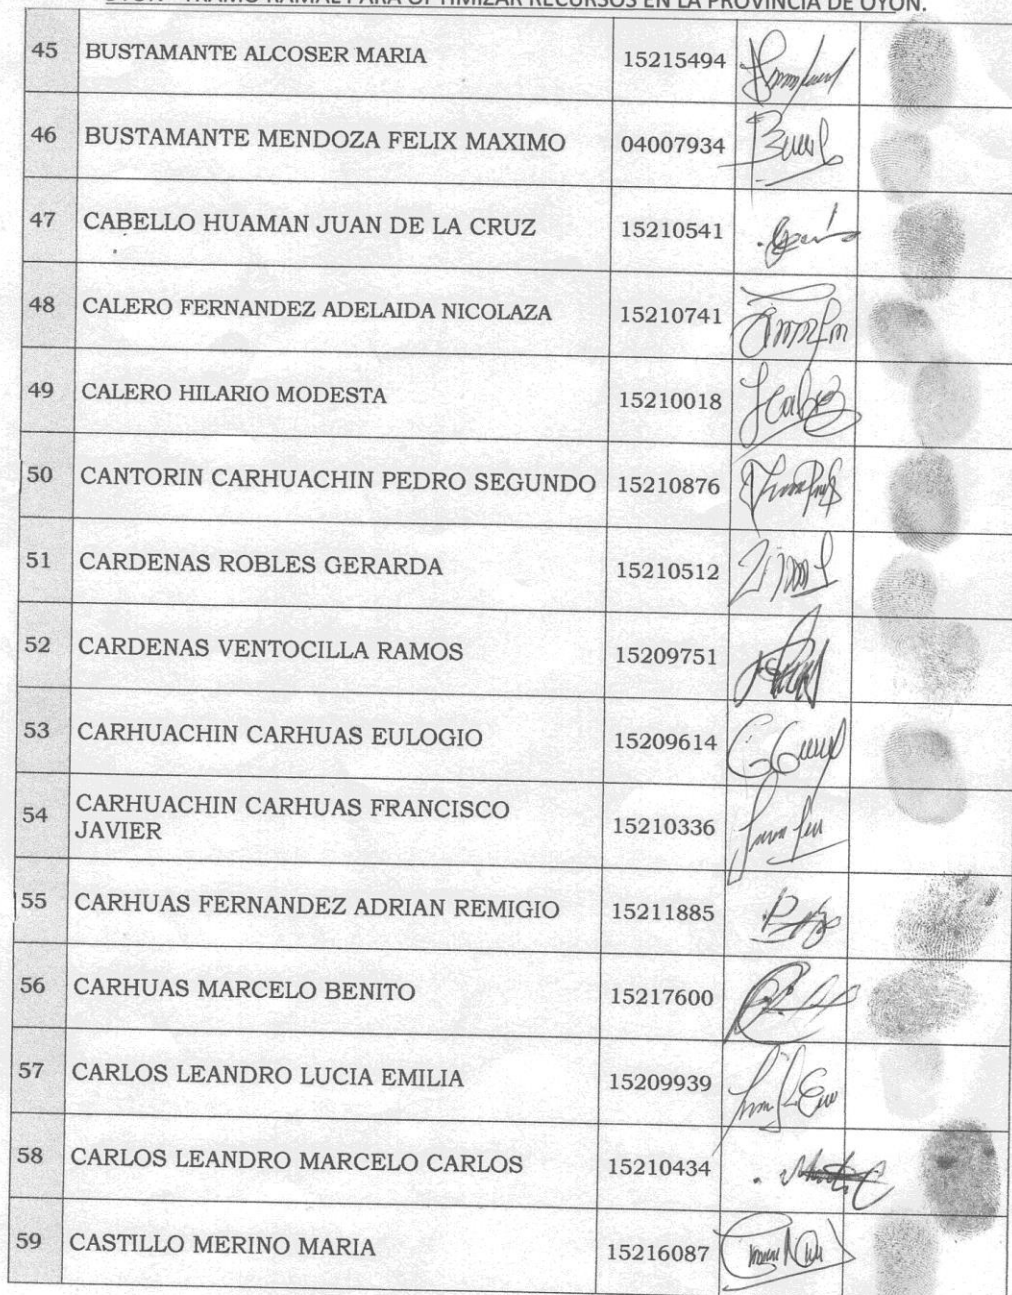 OYON - TRAMO RAMAL PARA OPTIMIZAR RECURSOS EN LA PROVINCIA DE OYON.
45 BUSTAMANTE ALCOSER MARIA 15215494
46 BUSTAMANTE MENDOZA FELIX MAXIMO 04007934
47 CABELLO HUAMAN JUAN DE LA CRUZ 15210541
48 CALERO FERNANDEZ ADELAIDA NICOLAZA 15210741
49 CALERO HILARIO MODESTA 15210018
50 CANTORIN CARHUACHIN PEDRO SEGUNDO 15210876
51 CARDENAS ROBLES GERARDA 15210512
52 CARDENAS VENTOCILLA RAMOS 15209751
53 CARHUACHIN CARHUAS EULOGIO 15209614
54 CARHUACHIN CARHUAS FRANCISCO
JAVIER 15210336
55 CARHUAS FERNANDEZ ADRIAN REMIGIO 15211885
56 CARHUAS MARCELO BENITO 15217600
57 CARLOS LEANDRO LUCIA EMILIA 15209939
58 CARLOS LEANDRO MARCELO CARLOS 15210434
59 CASTILLO MERINO MARIA 15216087